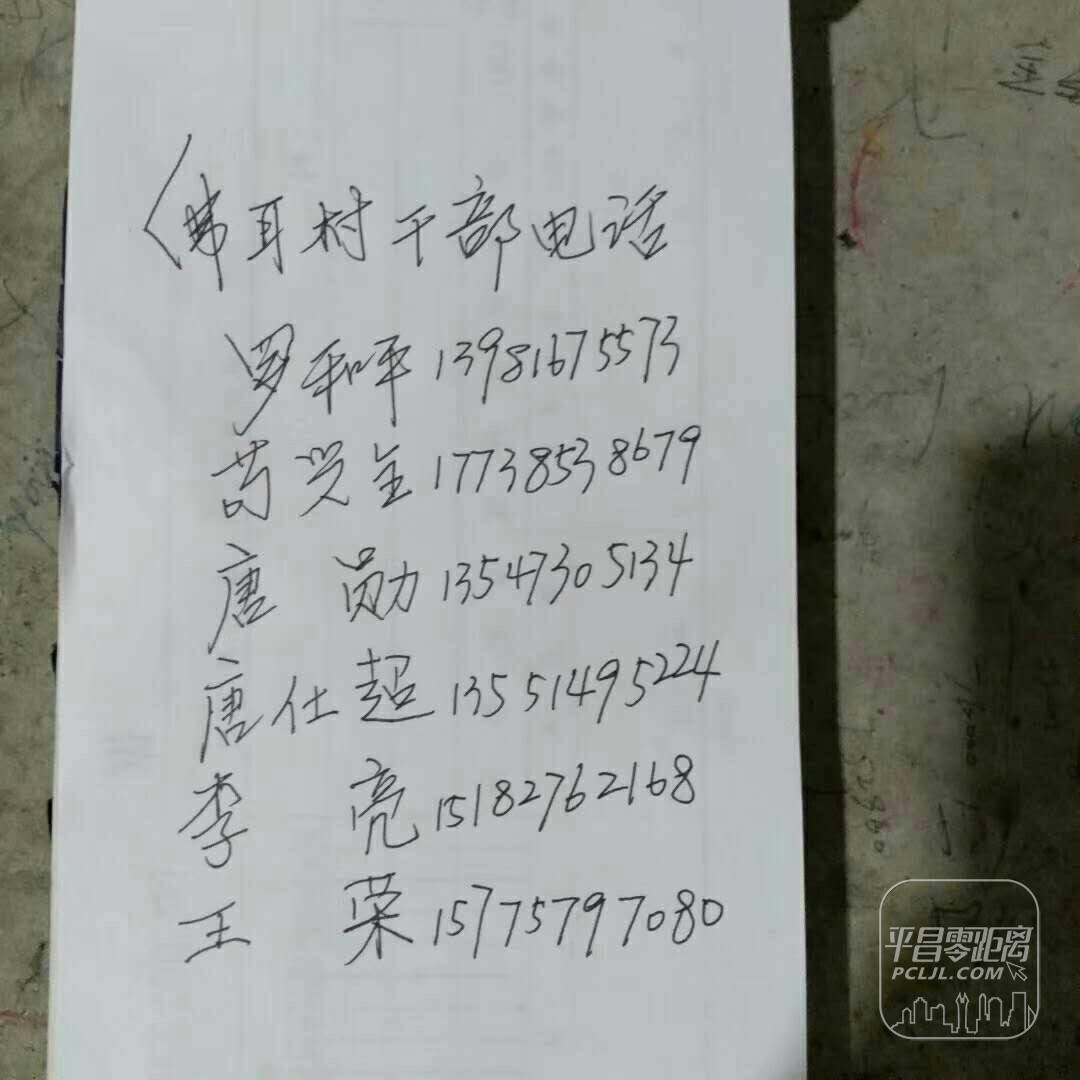 佛耳村干部电话
罗和平 13981675573
苟兴全 17738538679
唐勋 13547305134
唐仕超 13551495224
李亮 15182762168
王荣 15775797080
平昌零距离
PCLJL.COM